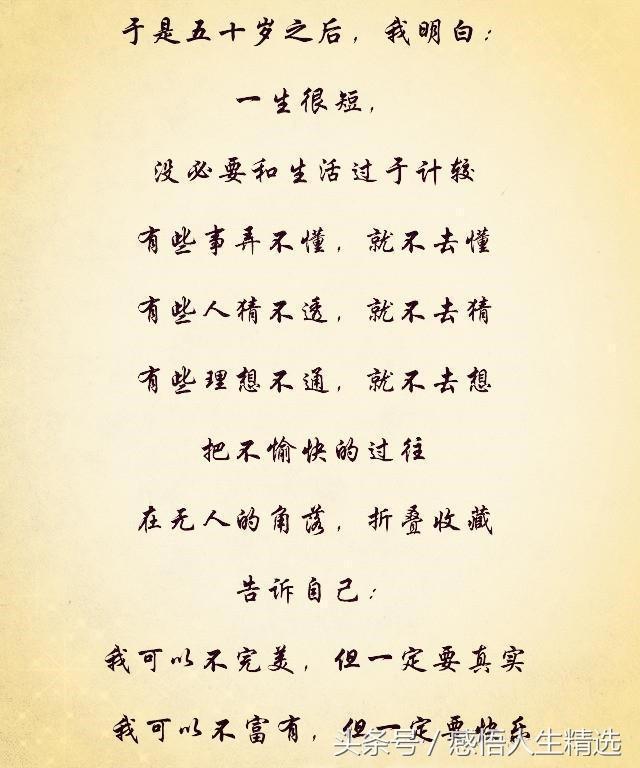 于是五十岁之后，我明白：
一生很短，
没必要和生活过于计较
有些事弄不懂，就不去懂
有些人猜不透，就不去猜
有些理想不通，就不去想
把不愉快的过往
在无人的角落，折叠收藏
告诉自己：
我可以不完美，但一定要真实
我可以不富有，但一定要快乐
头条号/感悟人生精选